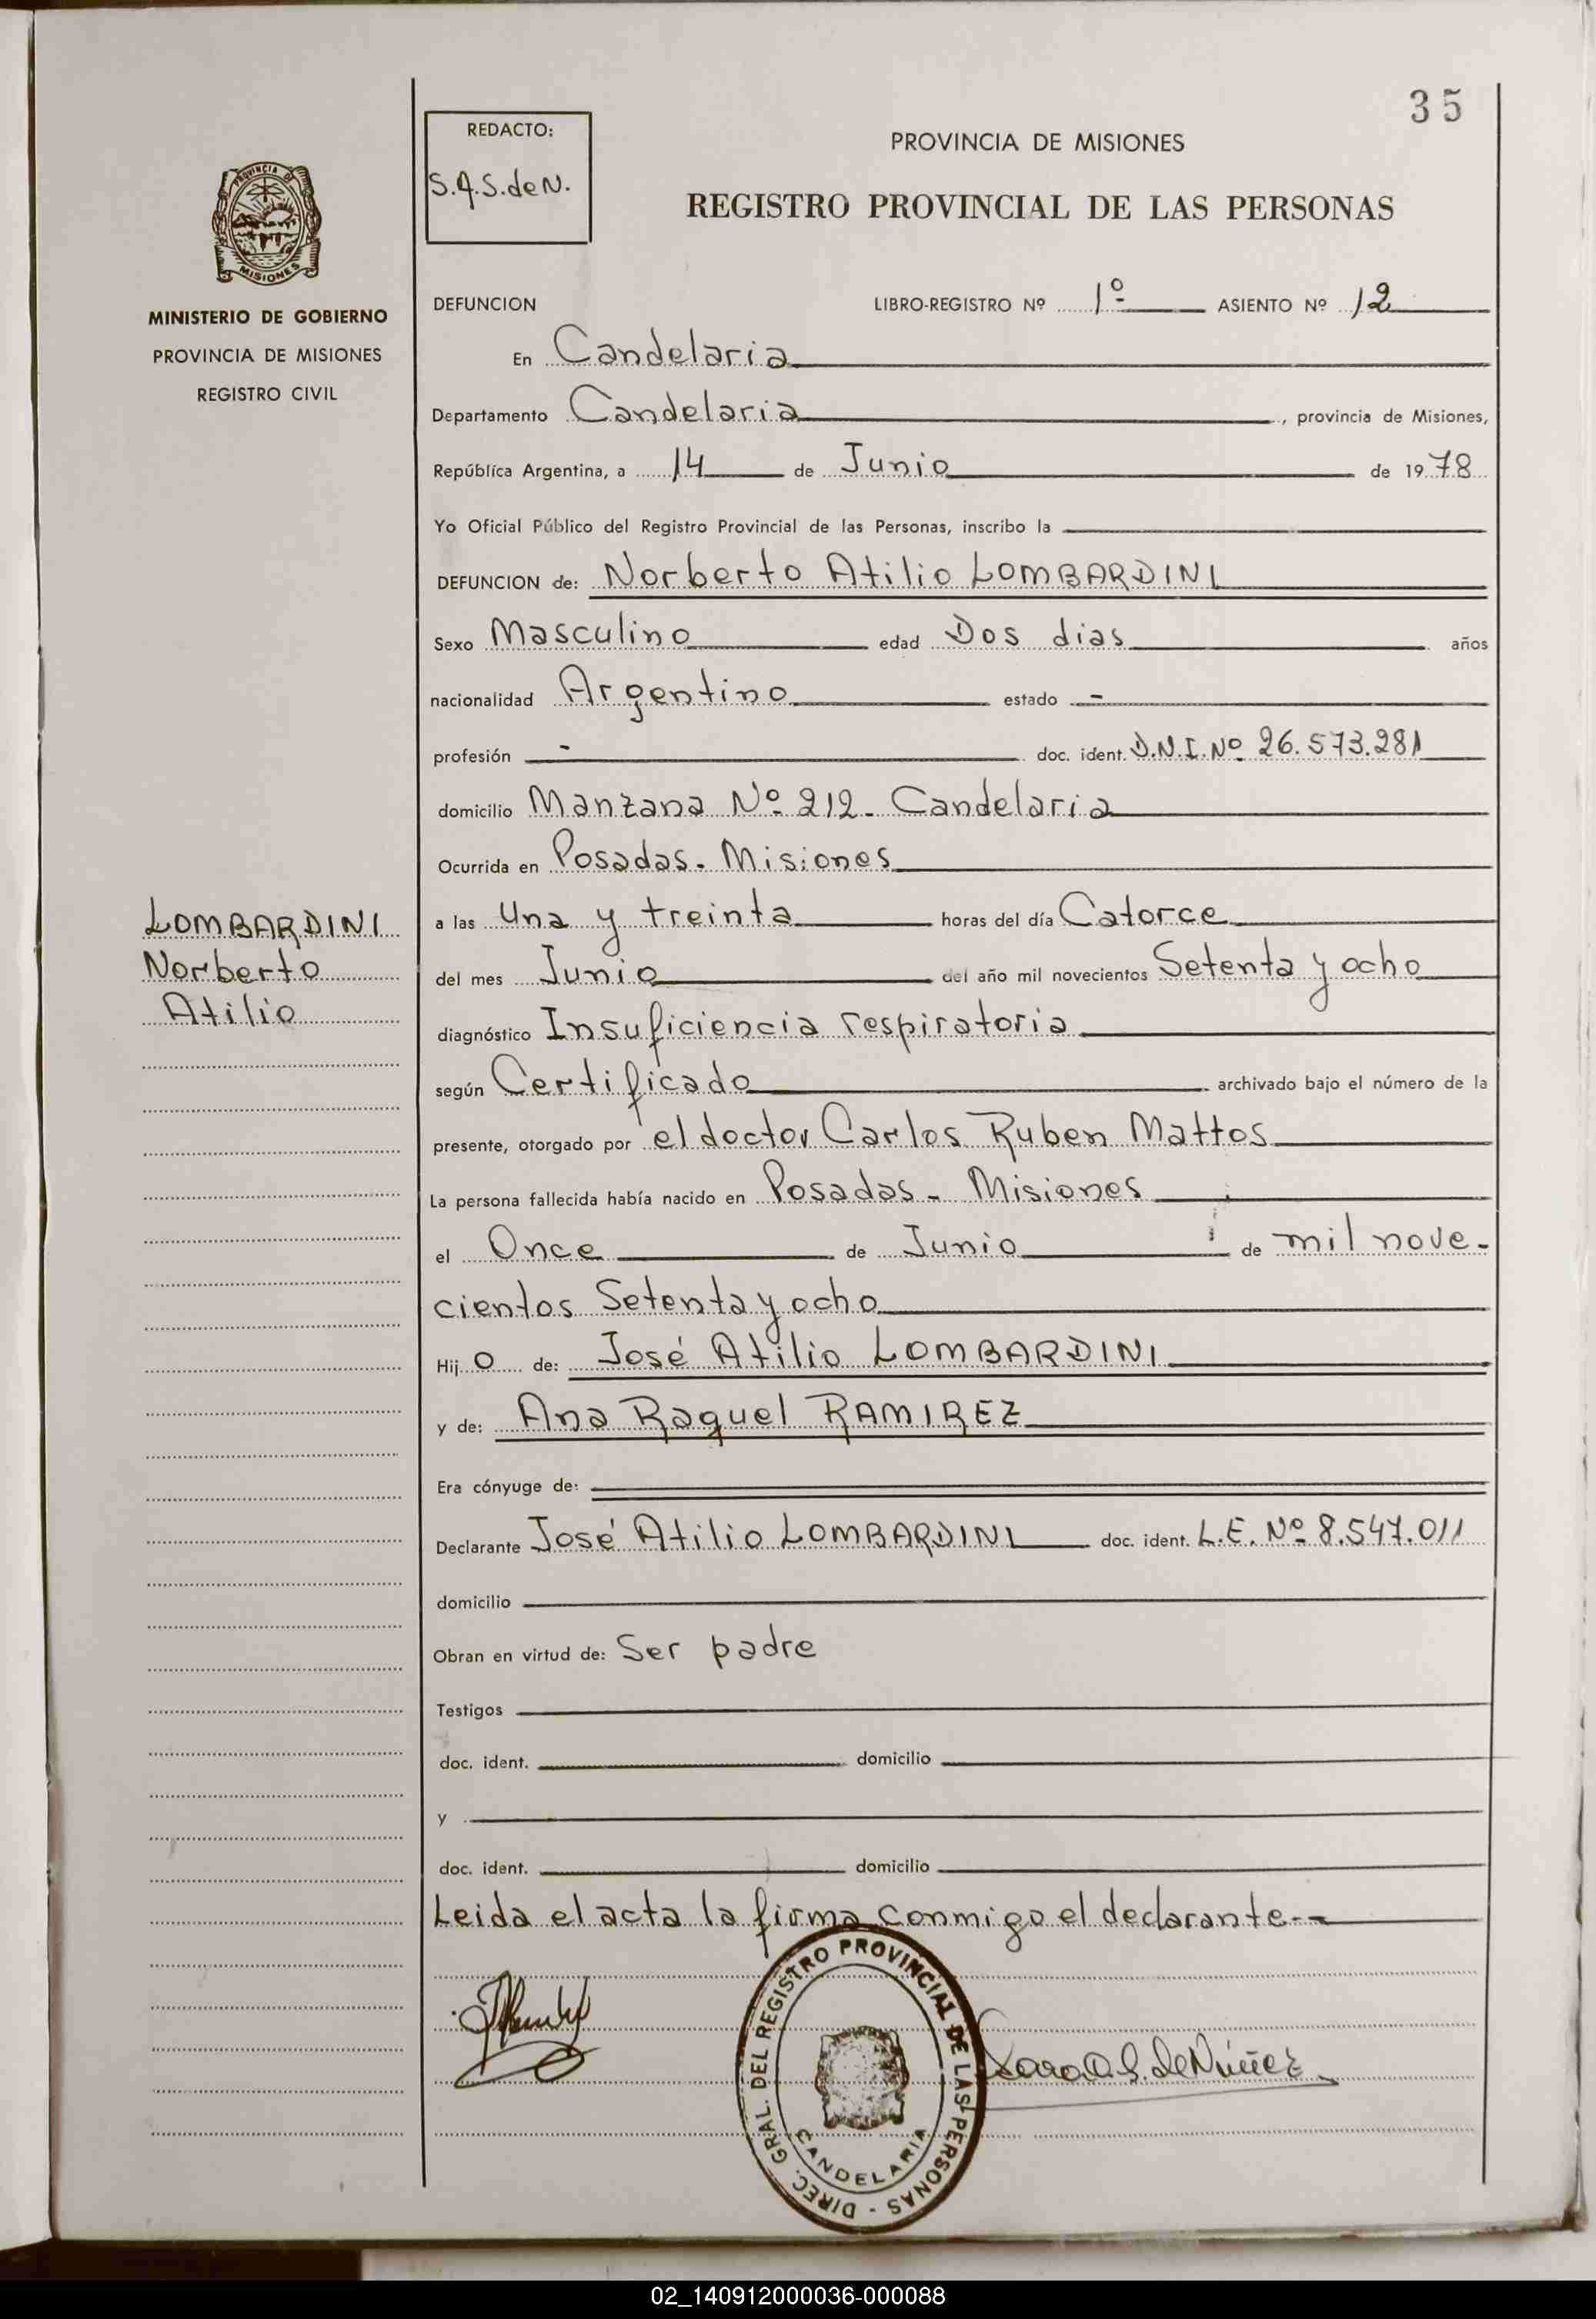 35
REDACTO:
S.A.S. de N.
PROVINCIA DE MISIONES
REGISTRO PROVINCIAL DE LAS PERSONAS
PROVINCIA DE
MISIONES
MINISTERIO DE GOBIERNO
PROVINCIA DE MISIONES
REGISTRO CIVIL
DEFUNCION LIBRO-REGISTRO Nº 1º ASIENTO Nº 12
En Candelaria
Departamento Candelaria, provincia de Misiones,
República Argentina, a 14 de Junio de 1978
Yo Oficial Público del Registro Provincial de las Personas, inscribo la
DEFUNCION de: Norberto Atilio LOMBARDINI
Sexo Masculino edad Dos dias años
nacionalidad Argentino estado -
profesión - doc. ident. D.N.I. Nº 26.573.281
domicilio Manzana Nº 212- Candelaria
Ocurrida en Posadas- Misiones
LOMBARDINI
Norberto
Atilio
a las Una y treinta horas del día Catorce
del mes Junio del año mil novecientos Setenta y ocho
diagnóstico Insuficiencia respiratoria
según Certificado archivado bajo el número de la
presente, otorgado por el doctor Carlos Ruben Mattos
La persona fallecida había nacido en Posadas- Misiones
el Once de Junio de mil nove-
cientos Setenta y ocho
Hij o de: José Atilio LOMBARDINI
y de: Ana Raquel RAMIREZ
Era cónyuge de:
Declarante José Atilio LOMBARDINI doc. ident. L.E. Nº 8.547.011
domicilio
Obran en virtud de: Ser padre
Testigos
doc. ident. domicilio
y
doc. ident. domicilio
Leida el acta la firma conmigo el declarante--
DIREC. GRAL. DEL REGISTRO PROVINCIAL DE LAS PERSONAS -
CANDELARIA
Sara A. S. de Núñez
02_140912000036-000088